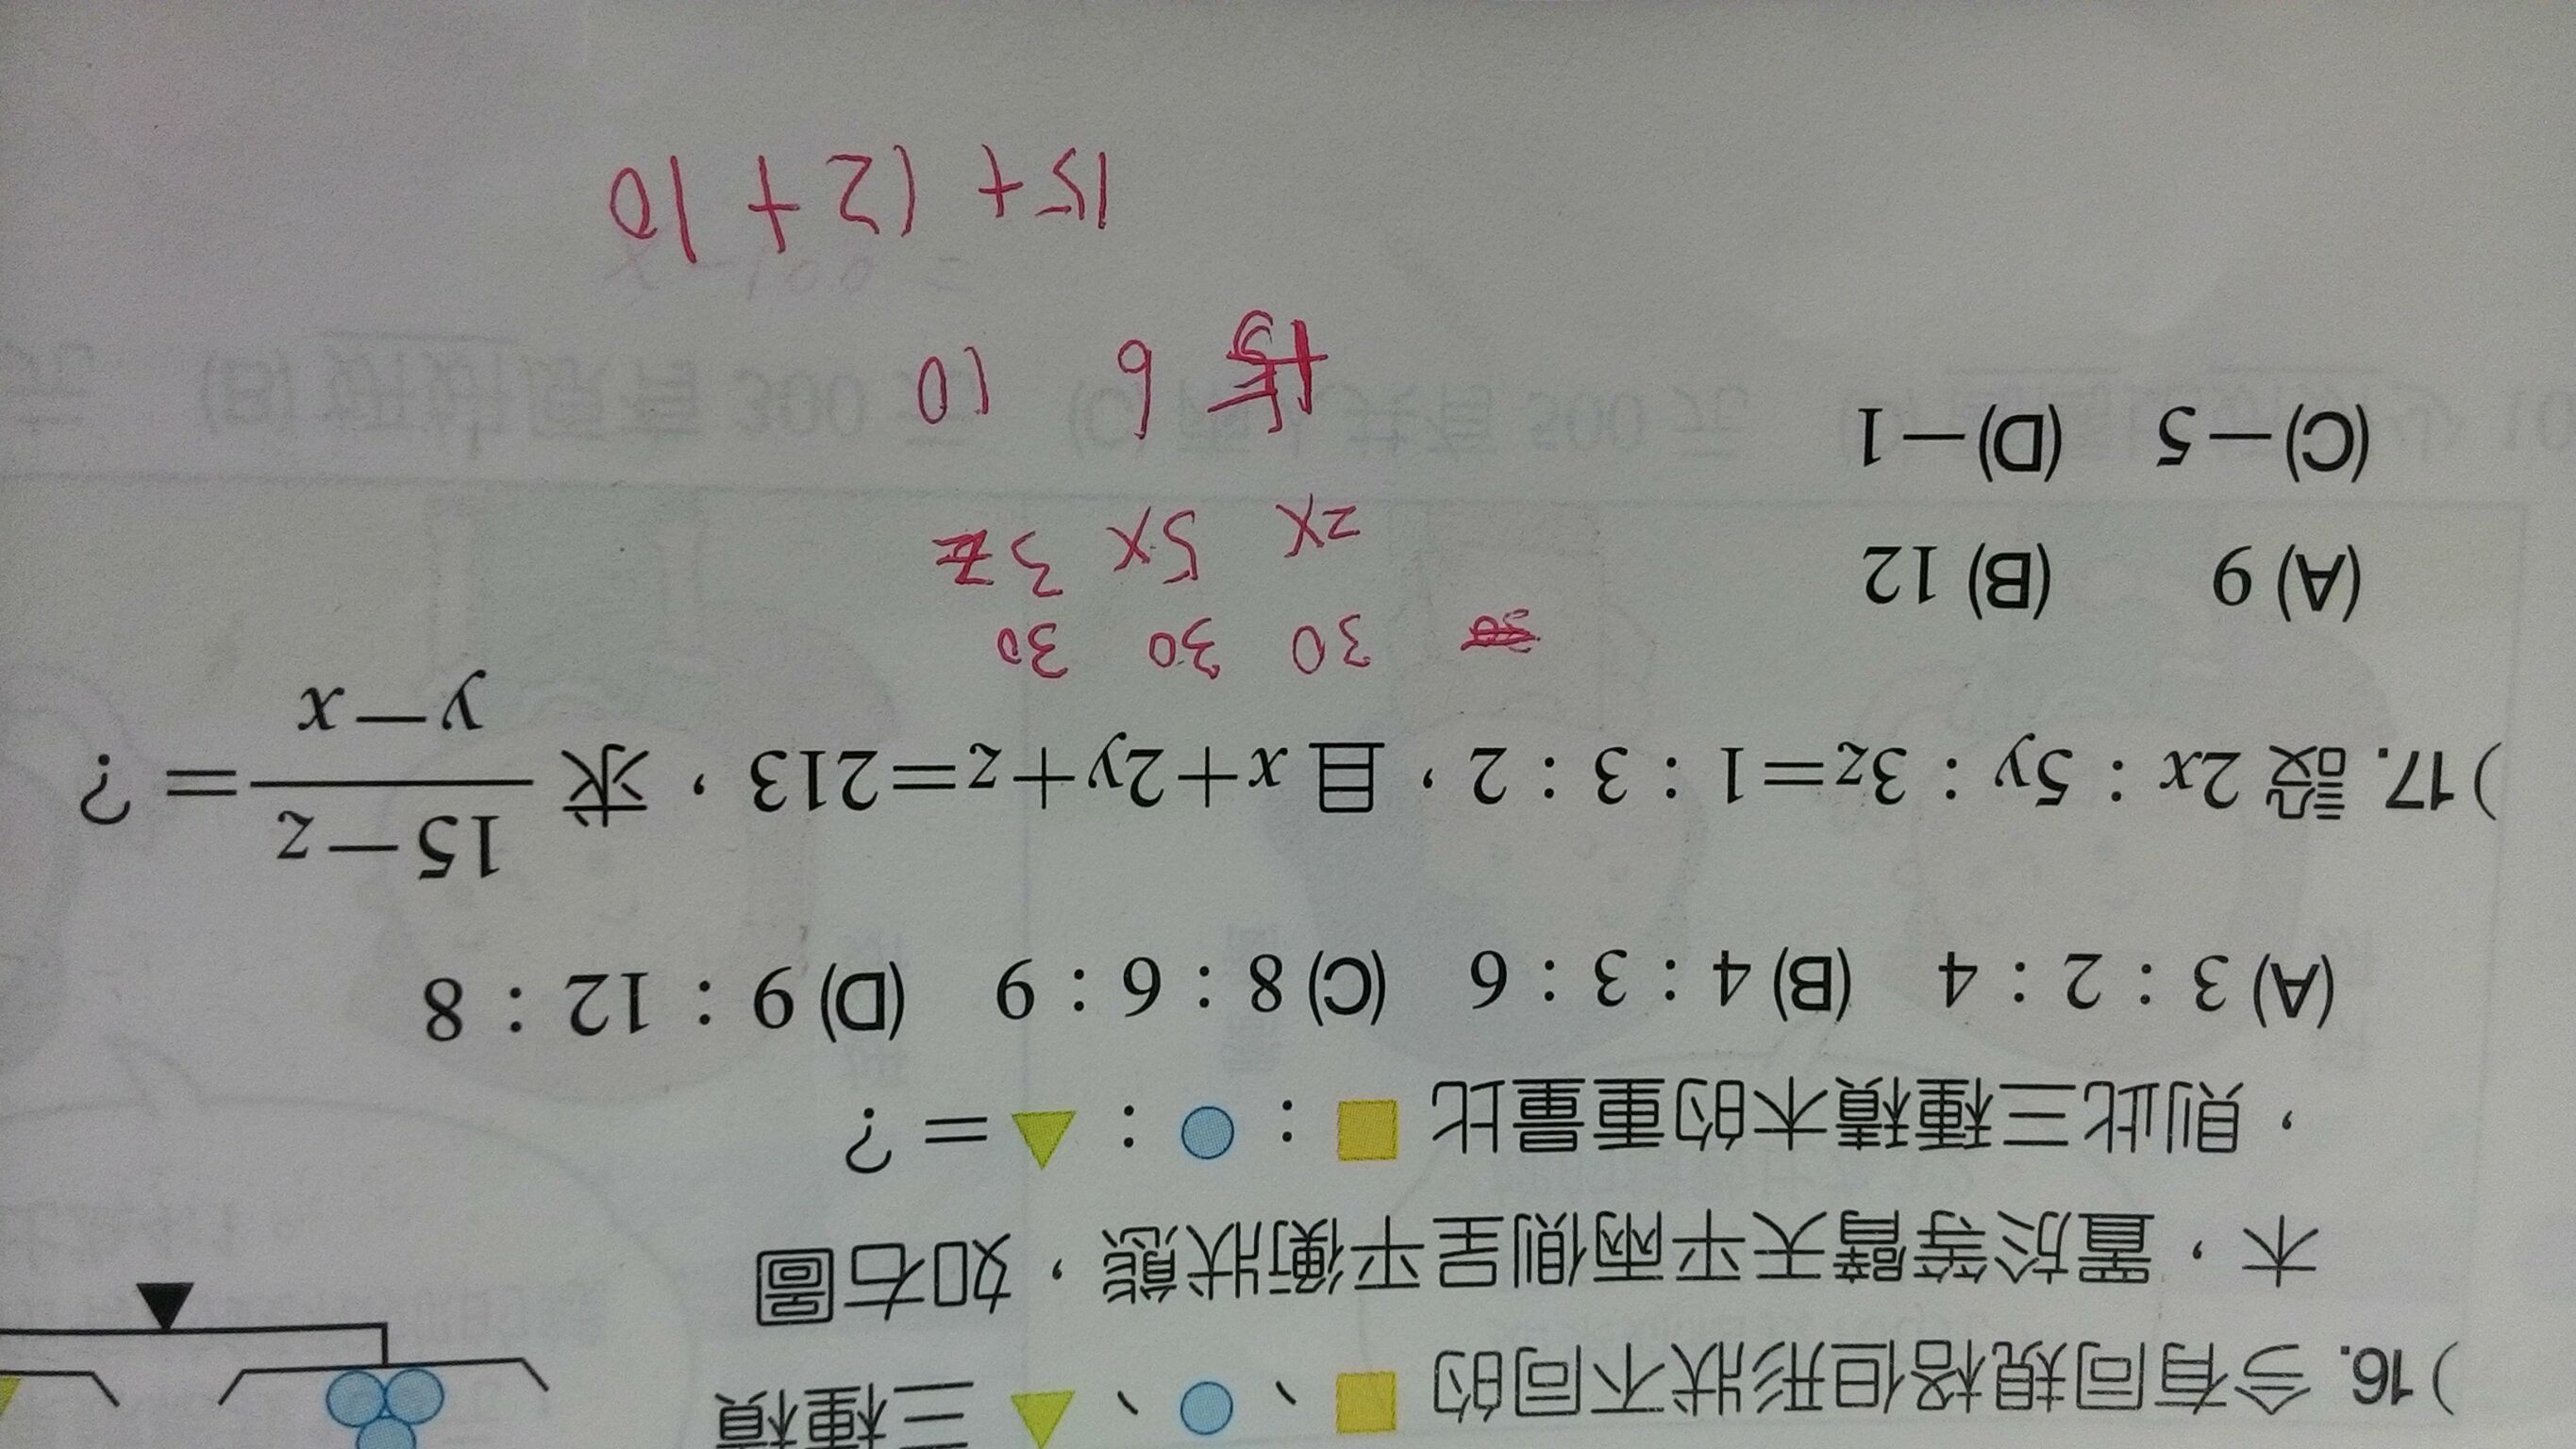 )16. 今有同規格但形狀不同的■、●、▲三種積
木,置於等臂天平兩側呈平衡狀態,如右圖
,則此三種積木的重量比■:●:▲=?
(A) 3:2:4 (B) 4:3:6 (C) 8:6:9 (D) 9:12:8
)17. 設 2x:5y:3z=1:3:2,且 x+2y+z=213,求 (15-z)/(y-x) =?
(A) 9 (B) 12
(C) -5 (D) -1
30 30 30
2x 5x 3z
15 6 10
15+12+10